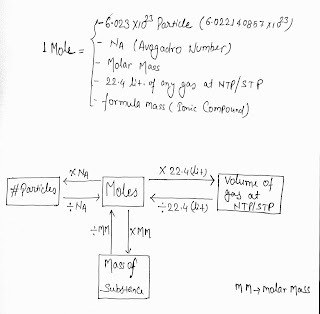 - 6.023 x10^23 Particle (6.022140857x10^23)
1 Mole =
- NA (Avogadro Number)
- Molar Mass
- 22.4 lit. of any gas at NTP/STP
- formula mass (Ionic Compound)
x NA
x 22.4(lit)
# Particles
Moles
Volume of
gas at
NTP/STP
÷ NA
÷ 22.4(lit)
÷ MM
x MM
Mass of
Substance
MM → Molar Mass